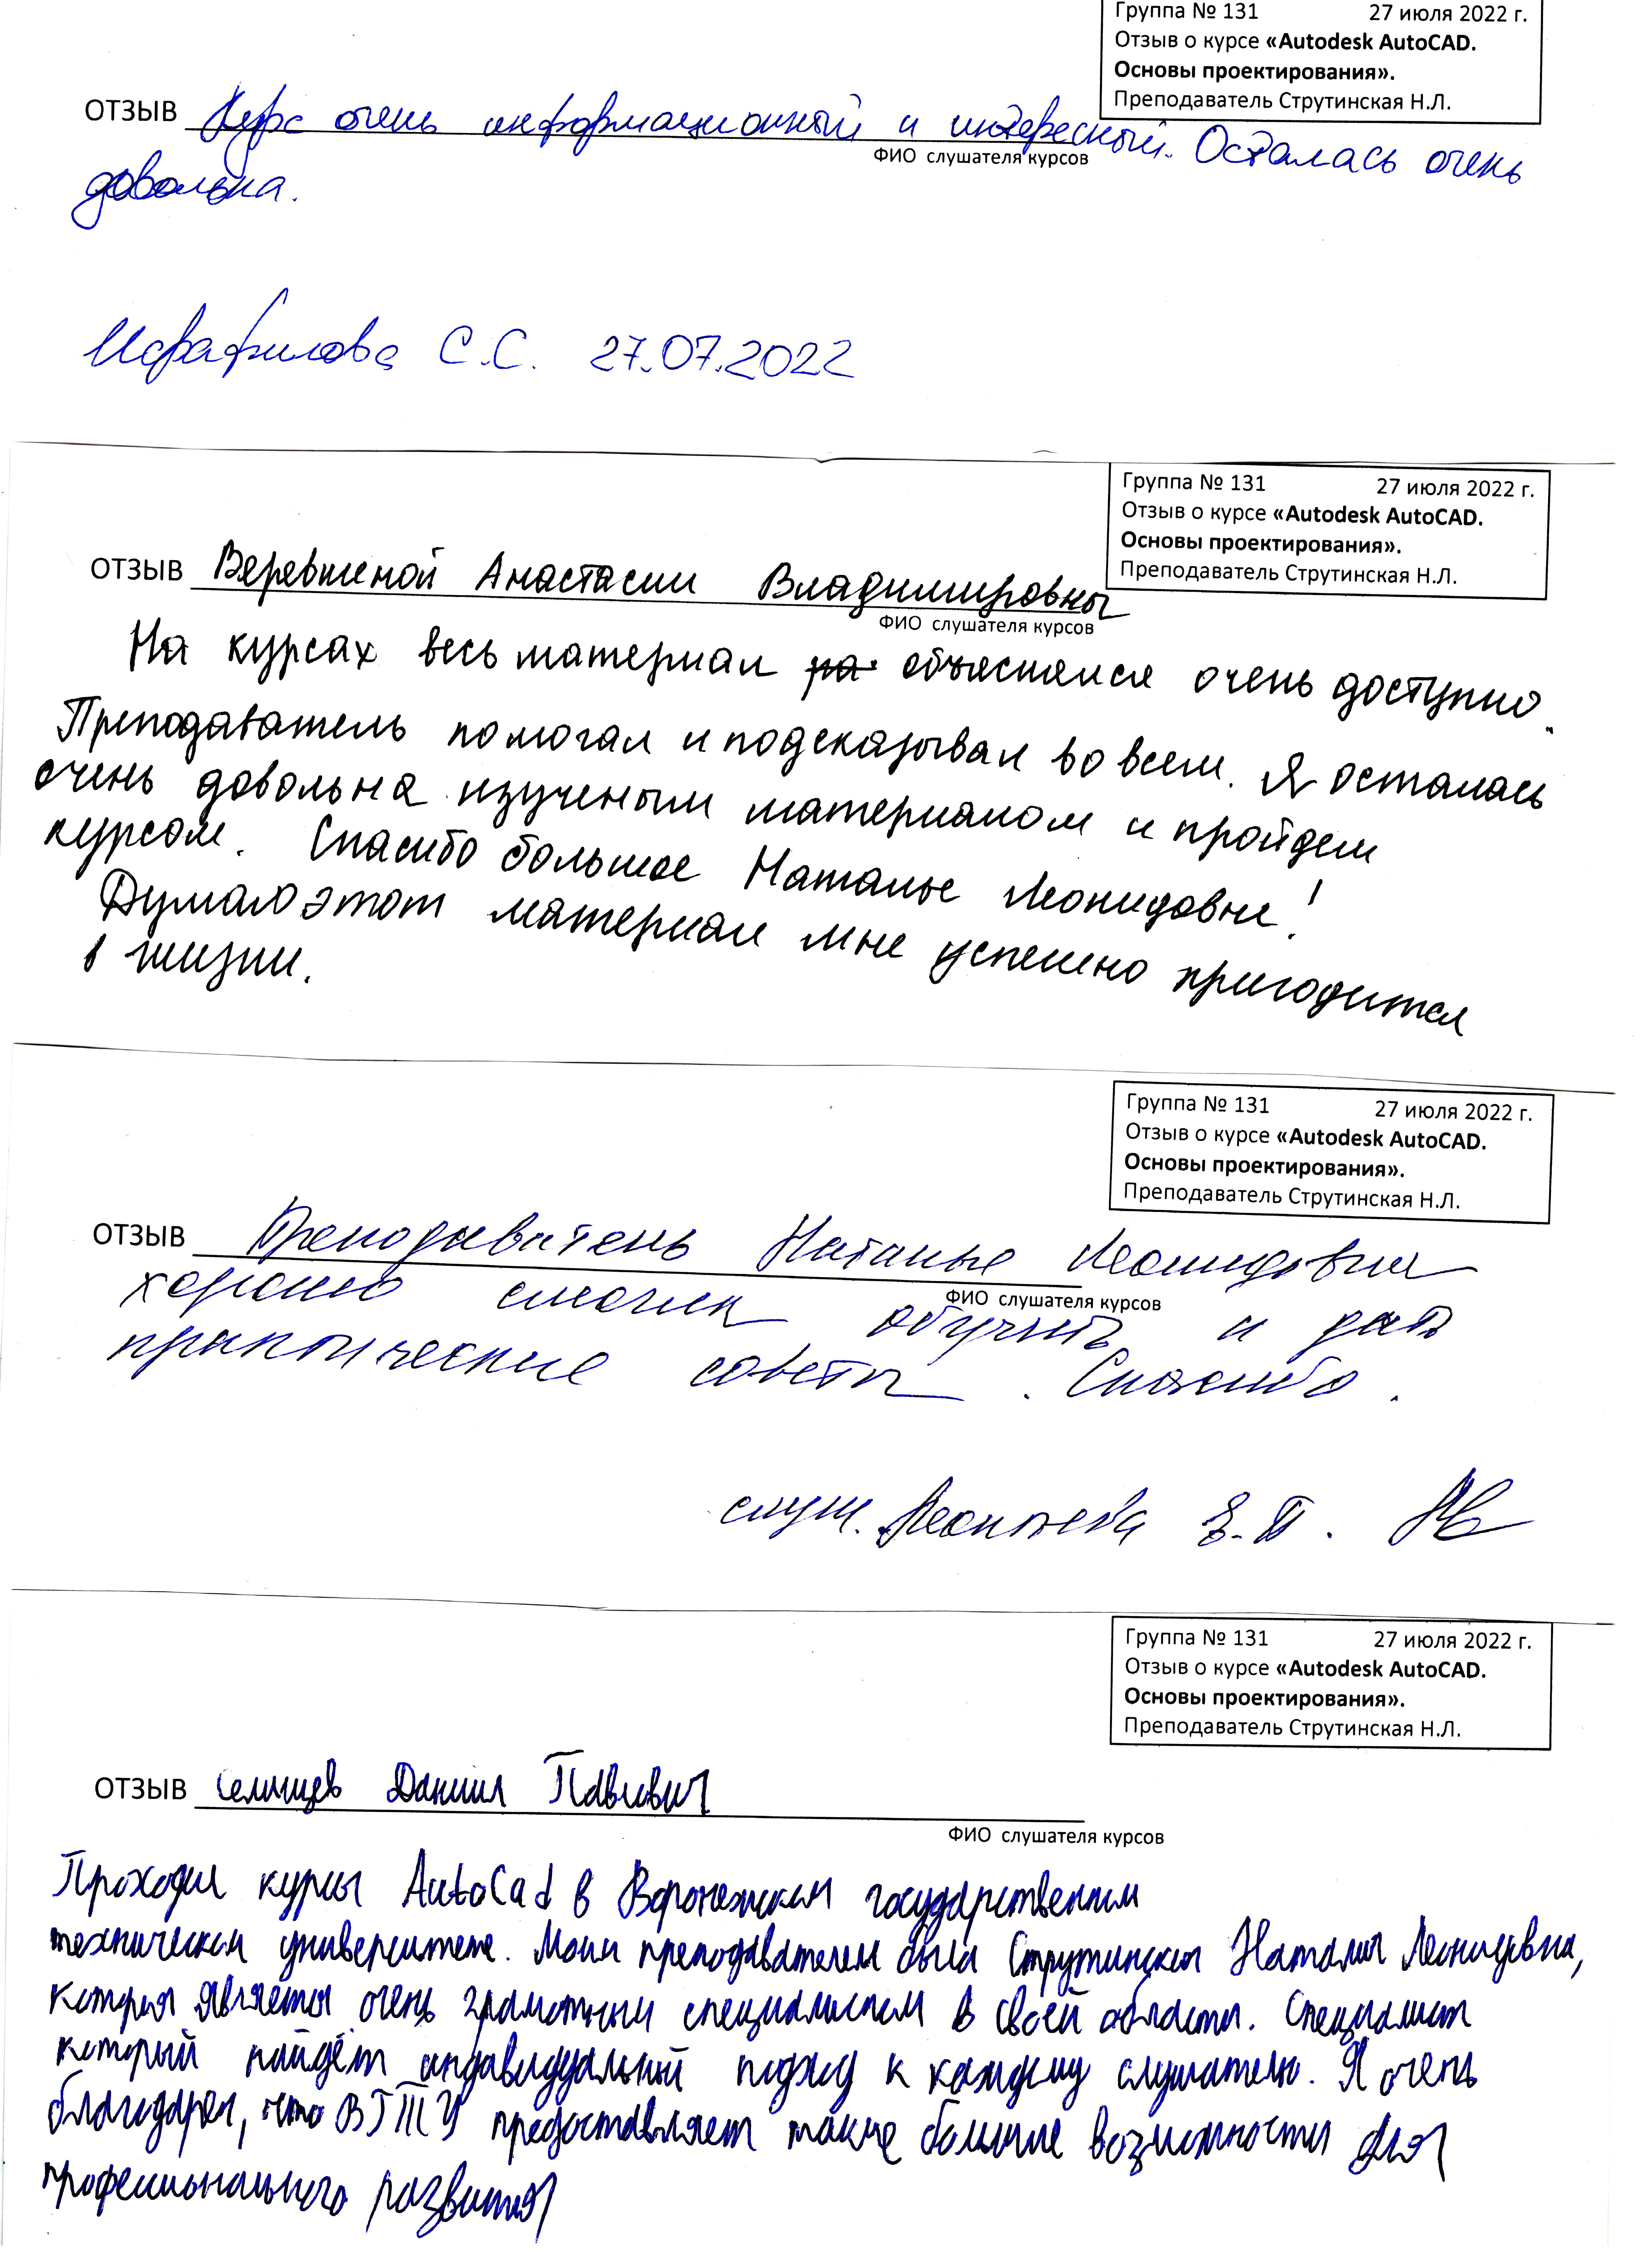 Группа № 131 27 июля 2022 г.
Отзыв о курсе «Autodesk AutoCAD.
Основы проектирования».
Преподаватель Струтинская Н.Л.
ОТЗЫВ Курс очень информационный и интересный. Осталась очень
ФИО слушателя курсов
довольна.
Исрафилова С.С. 27.07.2022
Группа № 131 27 июля 2022 г.
Отзыв о курсе «Autodesk AutoCAD.
Основы проектирования».
Преподаватель Струтинская Н.Л.
ОТЗЫВ Веревкиной Анастасии Владимировны
ФИО слушателя курсов
На курсах весь материал объяснялся очень доступно.
Преподаватель помогал и подсказывал во всем. Я осталась
очень довольна изученым материалом и пройдем
курсом. Спасибо большое Наталье Леонидовне!
Думаю этот материал мне успешно пригодится
в жизни.
Группа № 131 27 июля 2022 г.
Отзыв о курсе «Autodesk AutoCAD.
Основы проектирования».
Преподаватель Струтинская Н.Л.
ОТЗЫВ Преподаватель Наталья Леонидовна
ФИО слушателя курсов
хорошо смогла обучить и дать
практические советы. Спасибо.
слуш. Леонтьева З.П.
Группа № 131 27 июля 2022 г.
Отзыв о курсе «Autodesk AutoCAD.
Основы проектирования».
Преподаватель Струтинская Н.Л.
ОТЗЫВ Даниил Павлович
ФИО слушателя курсов
Проходил курсы AutoCad в Воронежском государственном
техническом университете. Моим преподавателем была Струтинская Наталия Леонидовна,
которая является очень грамотным специалистом в своей области. Специалист
который найдёт индивидуальный подход к каждому слушателю. Я очень
благодарен, что ВГТУ предоставляет такие большие возможности для
профессионального развития